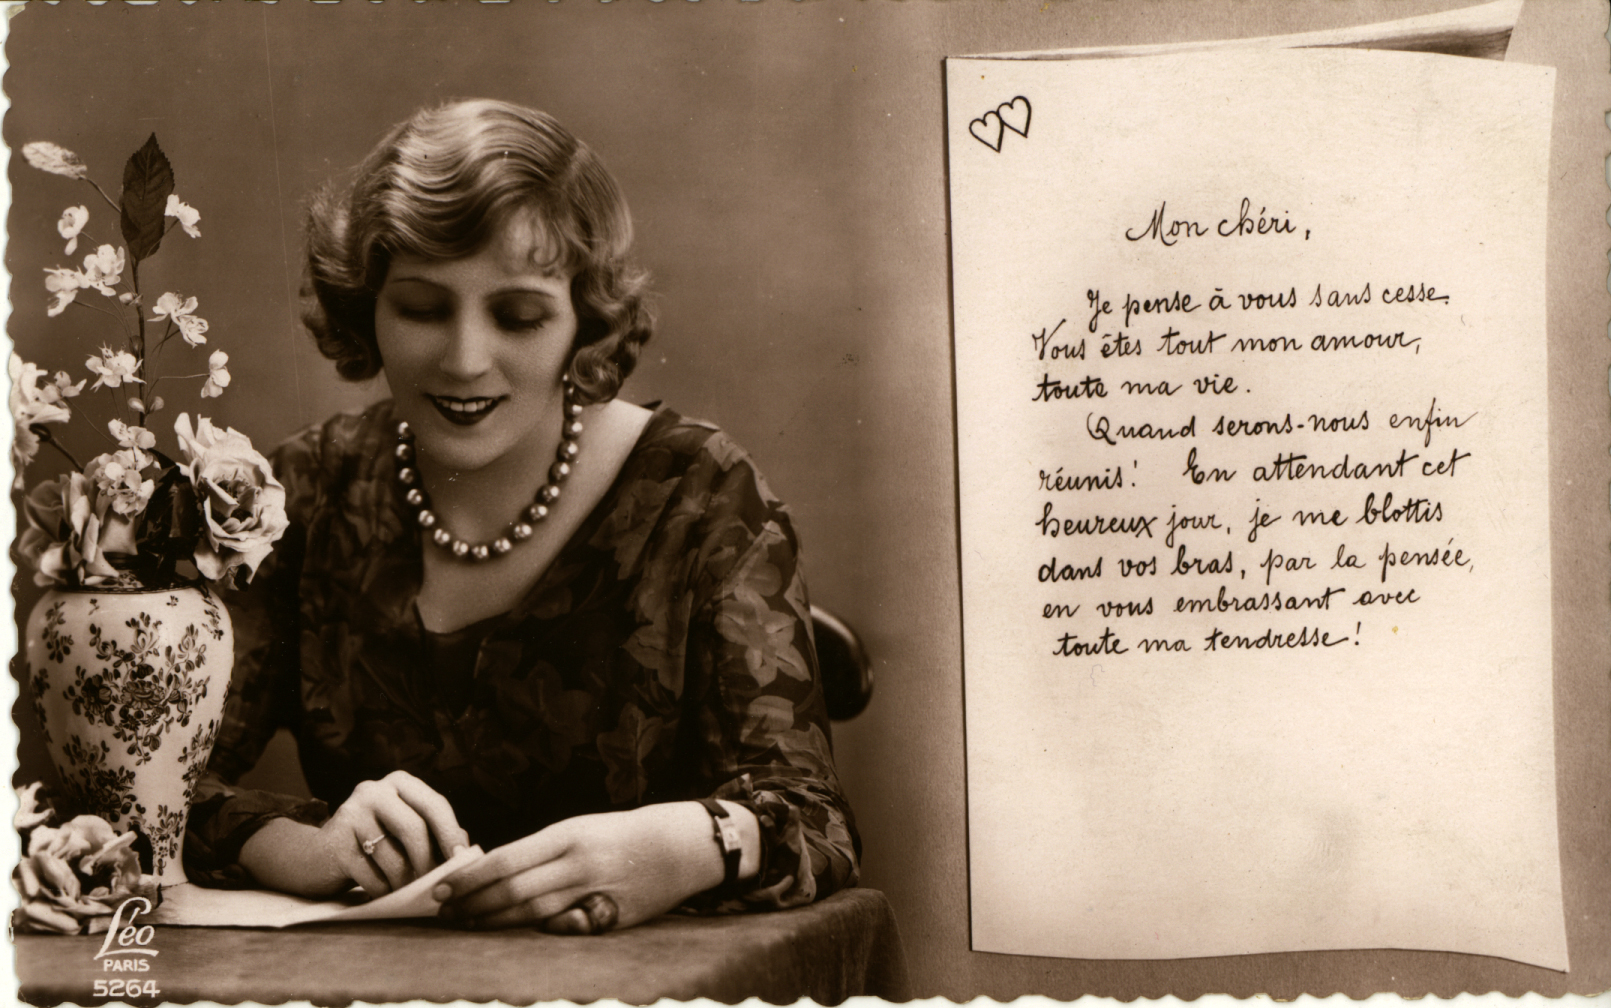 Mon chéri,
Je pense à vous sans cesse.
Vous êtes tout mon amour,
toute ma vie.
Quand serons-nous enfin
réunis! En attendant cet
heureux jour, je me blottis
dans vos bras, par la pensée,
en vous embrassant avec
toute ma tendresse!
Léo
PARIS
5264